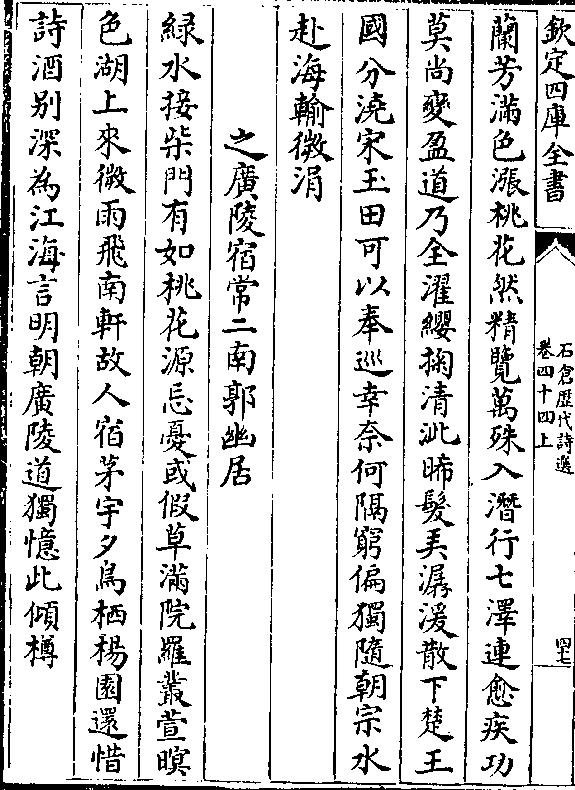 欽定四庫全書
石倉歷代詩選
卷四十四上
四七
蘭芳滿色漲桃花然精覽萬殊入潛行七澤連愈疾功
莫尚變盈道乃全濯纓掬清泚晞髮美潺湲散下楚王
國分澆宋玉田可以奉巡幸奈何隔窮偏獨隨朝宗水
赴海輸微涓
之廣陵宿常二南郭幽居
緑水接柴門有如桃花源忘憂或假草滿院羅叢萱暝
色湖上來微雨飛南軒故人宿茅宇夕鳥栖楊園還惜
詩酒别深為江海言明朝廣陵道獨憶此傾樽